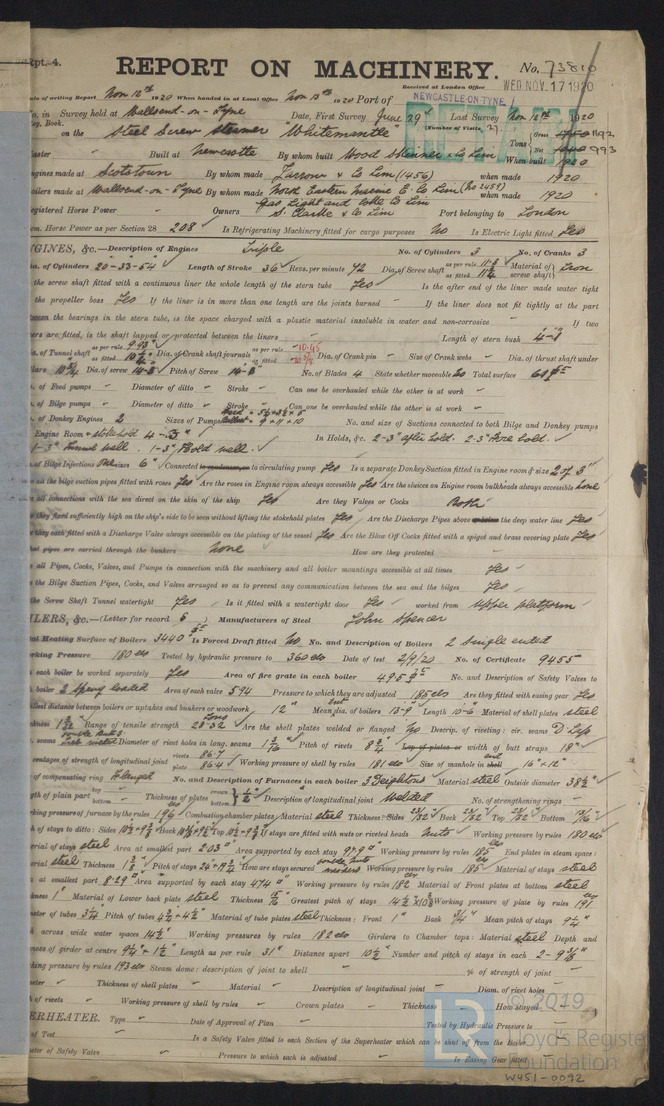 Rpt. 4.
REPORT ON MACHINERY.
No. 73810
Received at London Office
WED. NOV. 17 1920
Date of writing Report Nov 12th 1920 When handed in at Local Office Nov 13th 1920 Port of NEWCASTLE-ON-TYNE
No. in Survey held at Wallsend-on-Tyne Date, First Survey June 29th Last Survey Nov 12th 1920
Reg. Book. (Number of Visits, 27.
on the Steel Screw Steamer "Whitemantle" Tons Gross 1192 Net 993
Master Built at Newcastle By whom built Wood Skinner & Co Lim When built 1920
Engines made at Scotstown By whom made Yarrow & Co Lim (1456) when made 1920
Boilers made at Wallsend-on-Tyne By whom made North Eastern Marine E. Co Lim (No 2459) when made 1920
Gas Light and Coke Co Lim
Registered Horse Power - Owners S. Clarke & Co Lim Port belonging to London
Nom. Horse Power as per Section 28 208 Is Refrigerating Machinery fitted for cargo purposes No Is Electric Light fitted Yes
ENGINES, &c.—Description of Engines Triple No. of Cylinders 3 No. of Cranks 3
Dia. of Cylinders 20-33-54 Length of Stroke 36 Revs. per minute 72 Dia. of Screw shaft as per rule as fitted Material of screw shaft Iron
the screw shaft fitted with a continuous liner the whole length of the stern tube Yes Is the after end of the liner made water tight
the propeller boss Yes If the liner is in more than one length are the joints burned - If the liner does not fit tightly at the part
between the bearings in the stern tube, is the space charged with a plastic material insoluble in water and non-corrosive - If two
liners are fitted, is the shaft lapped or protected between the liners - Length of stern bush 4-1
Dia. of Tunnel shaft as per rule 9.93" as fitted 10½" Dia. of Crank shaft journals as per rule 10.45 as fitted Dia. of Crank pin - Size of Crank webs - Dia. of thrust shaft under
collars Dia. of screw 14-3 Pitch of Screw 14-3 No. of Blades 4 State whether moveable No Total surface
No. of Feed pumps - Diameter of ditto - Stroke - Can one be overhauled while the other is at work -
No. of Bilge pumps - Diameter of ditto - Stroke - Can one be overhauled while the other is at work -
No. of Donkey Engines 2 Sizes of Pumps No. and size of Suctions connected to both Bilge and Donkey pumps
In Engine Room & stokehold 4-3" In Holds, &c. 2-3" after hold. 2-3" Fore hold.
1-3" Tunnel well. 1-3" Hold well.
No. of Bilge Injections One sizes 6" Connected to condenser, or to circulating pump Yes Is a separate Donkey Suction fitted in Engine room & size 2 of 3"
Are all the bilge suction pipes fitted with roses Yes Are the roses in Engine room always accessible Yes Are the sluices on Engine room bulkheads always accessible None
Are all connections with the sea direct on the skin of the ship Yes Are they Valves or Cocks Both
Are they fixed sufficiently high on the ship's side to be seen without lifting the stokehold plates Yes Are the Discharge Pipes above the deep water line Yes
Are they each fitted with a Discharge Valve always accessible on the plating of the vessel Yes Are the Blow Off Cocks fitted with a spigot and brass covering plate Yes
What pipes are carried through the bunkers None How are they protected -
Are all Pipes, Cocks, Valves, and Pumps in connection with the machinery and all boiler mountings accessible at all times Yes
Are the Bilge Suction Pipes, Cocks, and Valves arranged so as to prevent any communication between the sea and the bilges Yes
Is the Screw Shaft Tunnel watertight Yes Is it fitted with a watertight door Yes worked from Upper Platform
BOILERS, &c.—(Letter for record S) Manufacturers of Steel John Spencer
Total Heating Surface of Boilers 3440 Is Forced Draft fitted No No. and Description of Boilers 2 Single ended
Working Pressure 180 lbs Tested by hydraulic pressure to 360 lbs Date of test 2/9/20 No. of Certificate 9455
Can each boiler be worked separately Yes Area of fire grate in each boiler No. and Description of Safety Valves to
each boiler 2 Spring loaded Area of each valve 5.94 Pressure to which they are adjusted 185 lbs Are they fitted with easing gear Yes
Smallest distance between boilers or uptakes and bunkers or woodwork 12" Mean dia. of boilers 13-9 Length 10-6 Material of shell plates steel
Thickness Range of tensile strength 28-32 Are the shell plates welded or flanged No Descrip. of riveting: cir. seams D Lap
long. seams Diameter of rivet holes in long. seams 1 3/16 Pitch of rivets 8¾ Lap of plates or width of butt straps 18"
Percentages of strength of longitudinal joint rivets 86.7 plate 86.4 Working pressure of shell by rules 181 lbs Size of manhole in 16" × 12"
Size of compensating ring Flanged No. and Description of Furnaces in each boiler 3 Deightons Material steel Outside diameter 38½"
Length of plain part top bottom - Thickness of plates crown bottom ½" Description of longitudinal joint Welded No. of strengthening rings -
Working pressure of furnace by the rules 196 Combustion chamber plates: Material steel Thickness: Sides 21/32" Back 21/32" Top 21/32" Bottom
Pitch of stays to ditto: Sides Back Top If stays are fitted with nuts or riveted heads Nuts Working pressure by rules 180 lbs
Material of stays steel Area at smallest part 2.03" Area supported by each stay 97.9" Working pressure by rules 185 End plates in steam space:
Material steel Thickness 1⅛" Pitch of stays How are stays secured double nuts & washers Working pressure by rules 185 Material of stays steel
Area at smallest part 8.29" Area supported by each stay 474" Working pressure by rules 182 Material of Front plates at bottom steel
Thickness 1" Material of Lower back plate steel Thickness Greatest pitch of stays Working pressure of plate by rules 191
Diameter of tubes 3¼ Pitch of tubes 4½ × 4½" Material of tube plates steel Thickness: Front 1" Back ¾" Mean pitch of stays 9¼"
Pitch across wide water spaces 14½" Working pressures by rules 182 lbs Girders to Chamber tops: Material steel Depth and
thickness of girder at centre 9¼" × 1½" Length as per rule 31" Distance apart 10½" Number and pitch of stays in each
Working pressure by rules 193 lbs Steam dome: description of joint to shell - % of strength of joint -
Diameter - Thickness of shell plates - Material - Description of longitudinal joint - Diam. of rivet holes -
Pitch of rivets - Working pressure of shell by rules - Crown plates - Thickness - How stayed -
SUPERHEATER. Type - Date of Approval of Plan - Tested by Hydraulic Pressure to
Date of Test. - Is a Safety Valve fitted to each Section of the Superheater which can be shut off from the Boiler -
Diameter of Safety Valve - Pressure to which each is adjusted - Is Easing Gear fitted -
© 2019
Lloyd's Register
Foundation
W451-0092